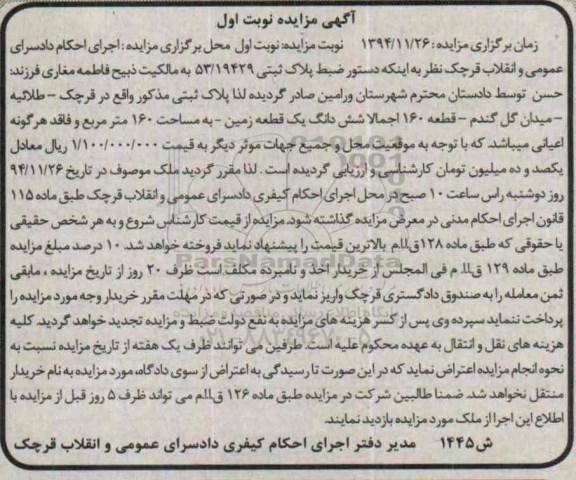 آگهی مزایده نوبت اول
زمان برگزاری مزایده: ۱۳۹۴/۱۱/۲۶ نوبت مزایده: نوبت اول محل برگزاری مزایده: اجرای احکام دادسرای
عمومی و انقلاب قرچک نظر به اینکه دستور ضبط پلاک ثبتی ۵۳/۱۹۴۲۹ به مالکیت ذبیح فاطمه مغاری فرزند:
حسن توسط دادستان محترم شهرستان ورامین صادر گردیده لذا پلاک ثبتی مذکور واقع در قرچک - طلائیه
- میدان گل گندم - قطعه ۱۶۰ اجمالا شش دانگ یک قطعه زمین - به مساحت ۱۶۰ متر مربع و فاقد هرگونه
اعیانی میباشد. که با توجه به موقعیت محل و جمیع جهات موثر دیگر به قیمت ۱/۱۰۰/۰۰۰/۰۰۰ ریال معادل
یکصد و ده میلیون تومان کارشناسی و ارزیابی گردیده است. لذا مقرر گردید ملک موصوف در تاریخ ۹۴/۱۱/۲۶
روز دوشنبه راس ساعت ۱۰ صبح در محل اجرای احکام کیفری دادسرای عمومی و انقلاب قرچک طبق ماده ۱۱۵
قانون اجرای احکام مدنی در معرض مزایده گذاشته شود. مزایده از قیمت کارشناس شروع و به هر شخص حقیقی
یا حقوقی که طبق ماده ۱۲۸ ق.ا.ا.م بالاترین قیمت را پیشنهاد نماید فروخته خواهد شد. ۱۰ درصد مبلغ مزایده
طبق ماده ۱۲۹ ق.ا.ا.م فی المجلس از خریدار اخذ و نامبرده مکلف است ظرف ۲۰ روز از تاریخ مزایده، مابقی
ثمن معامله را به صندوق دادگستری قرچک واریز نماید و در صورتی که در مهلت مقرر خریدار وجه مورد مزایده را
پرداخت ننماید سپرده وی پس از کسر هزینه های مزایده به نفع دولت ضبط و مزایده تجدید خواهد گردید. کلیه
هزینه های نقل و انتقال به عهده محکوم علیه است. طرفین می توانند ظرف یک هفته از تاریخ مزایده نسبت به
نحوه انجام مزایده اعتراض نماید که در این صورت تا رسیدگی به اعتراض از سوی دادگاه، مورد مزایده به نام خریدار
منتقل نخواهد شد. ضمنا طالبین شرکت در مزایده طبق ماده ۱۲۶ ق.ا.ا.م می تواند ظرف ۵ روز قبل از مزایده با
اطلاع این اجرا از ملک مورد مزایده بازدید نمایند.
ش۱۴۴۵ مدیر دفتر اجرای احکام کیفری دادسرای عمومی و انقلاب قرچک
ParsNamadData